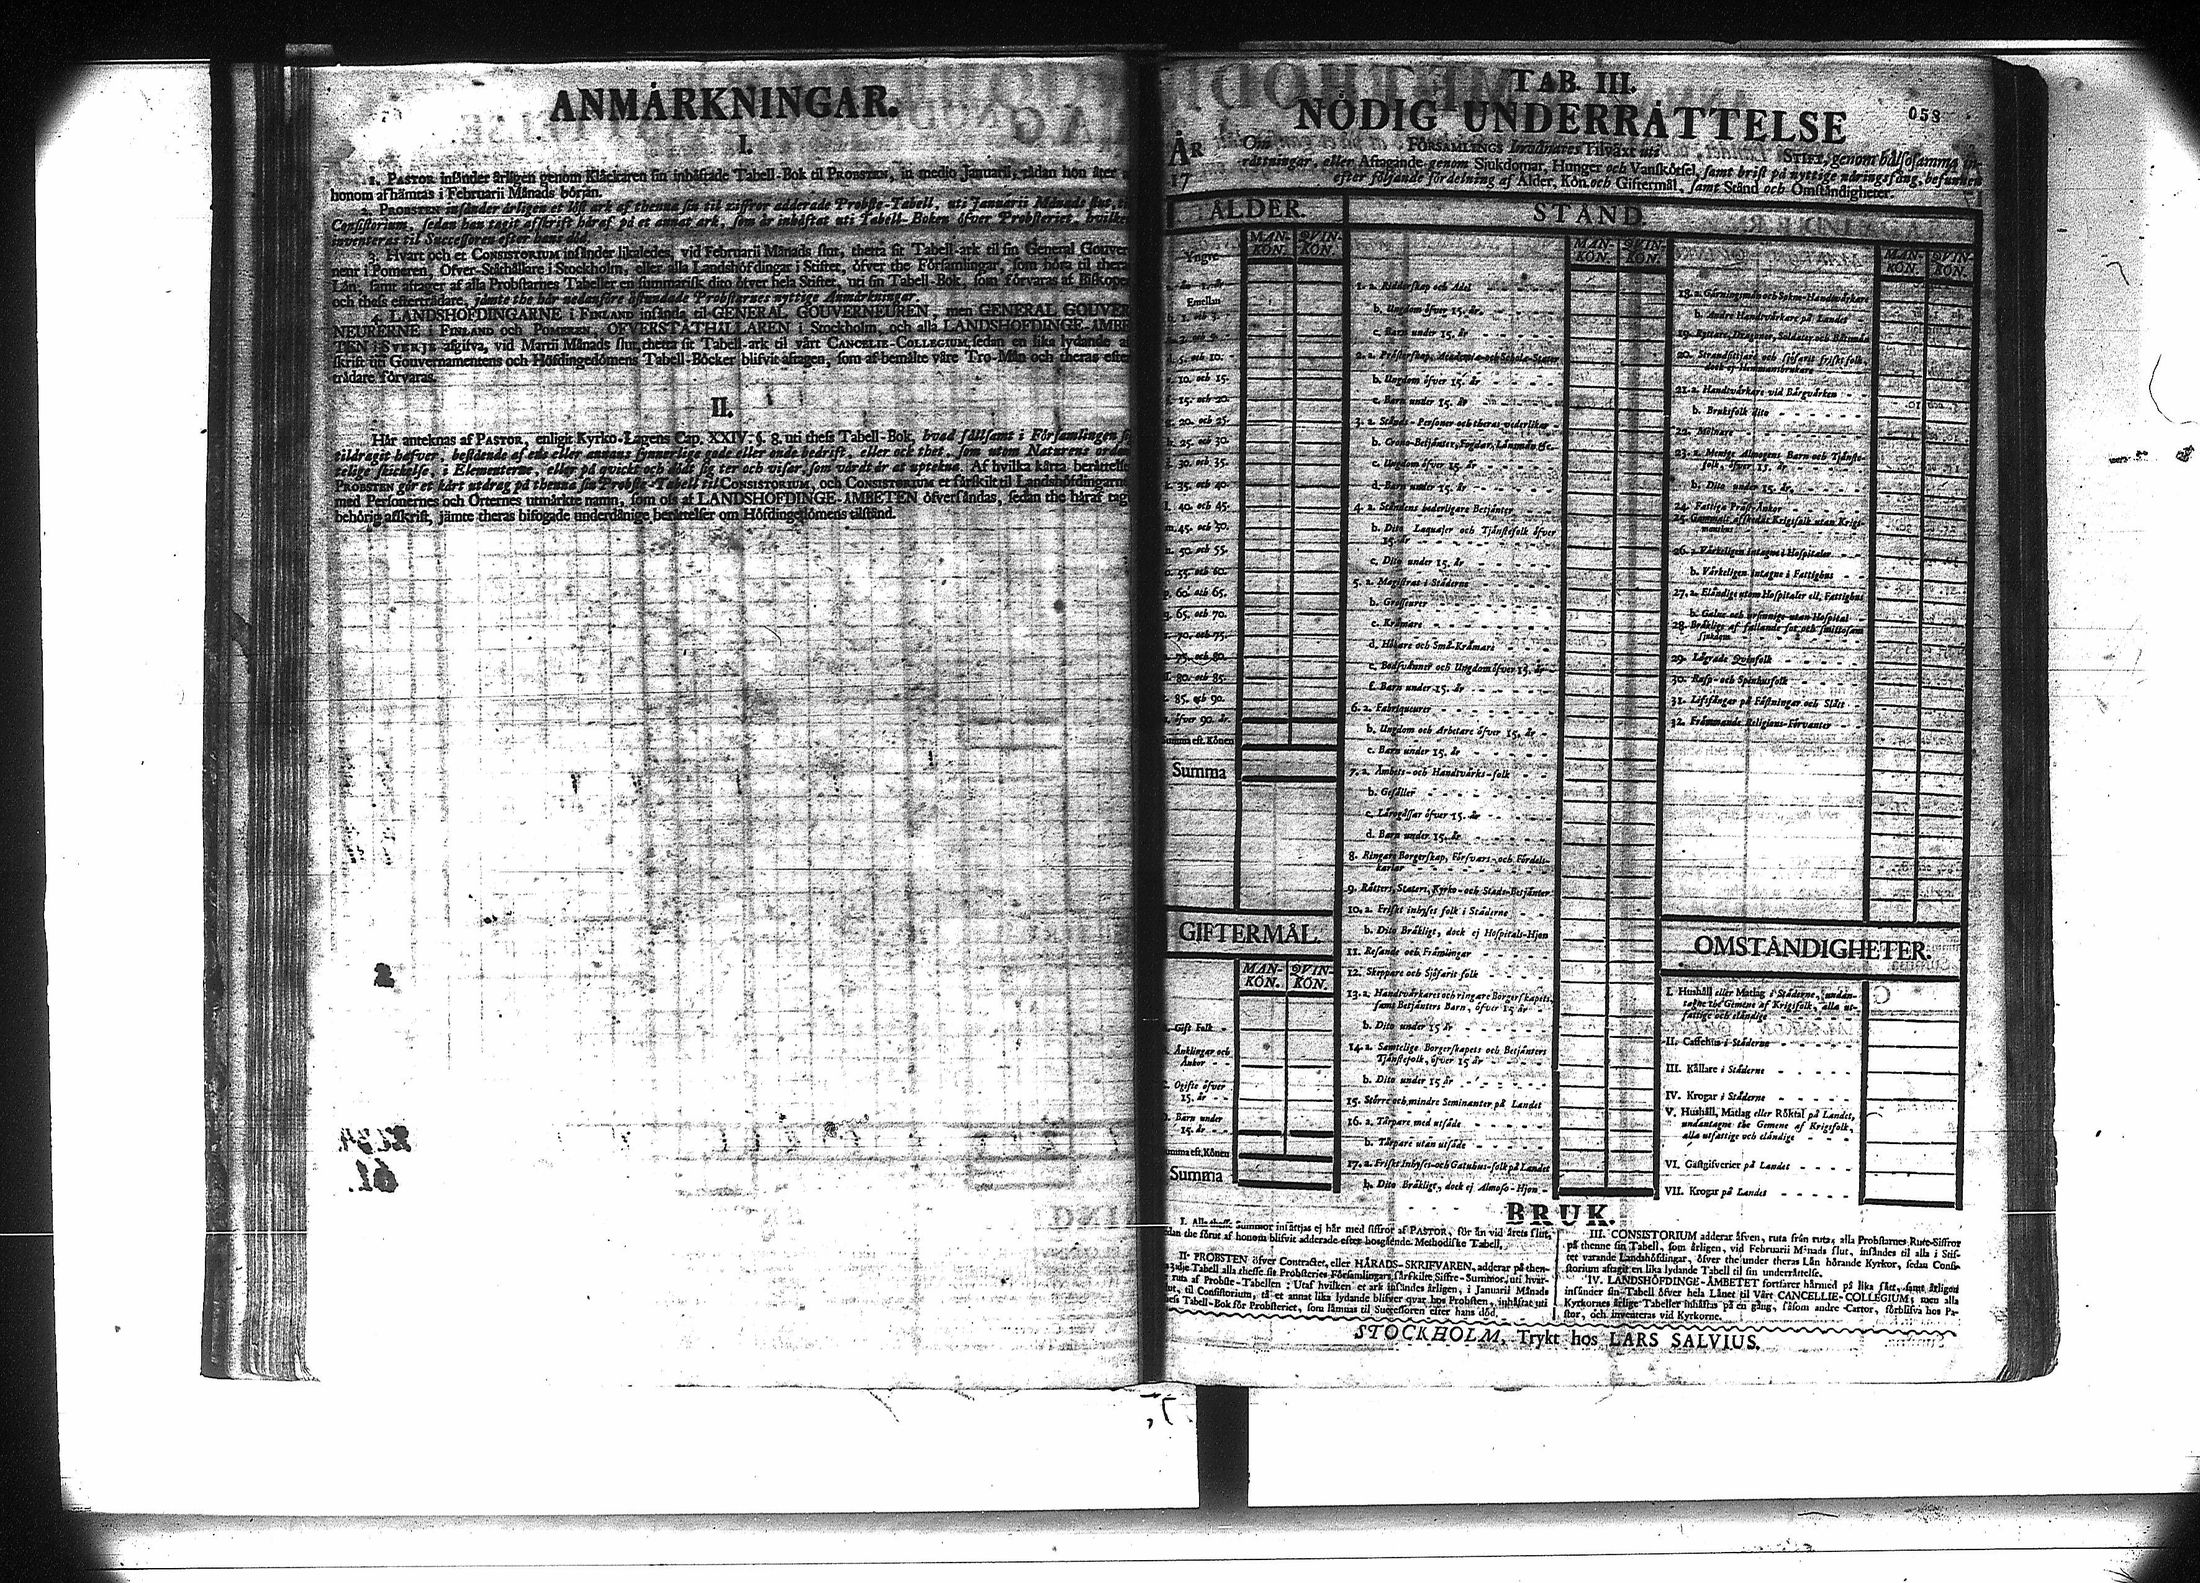 ANMÅRKNINGAR.
I.
1. PASTOR insånder årligen genom Klåckaren sin inhåftade Tabell-Bok til PROBSTEN, in medio Januarii, sådan hon åter
honom afhåmtas i Februarii Månads början.
2. PROBSTEN insånder årligen et löst ark af thenna sin til ziffror adderade Probste-Tabell, uti Januarii Månads slut,
Consistorium, sedan han tagit afskrift håraf på et annat ark, som år inhåftat uti Tabell-Boken öfver Probsteriet, hvilken
inventeras til Successoren efter hans död.
3. Hvart och et CONSISTORIUM insånder likaledes, vid Februarii Månads slut, thetta sit Tabell-ark til sin General Gouver-
neur i Pomeren, Öfver-Ståthållare i Stockholm, eller alla Landshöfdingar i Stiftet, öfver the Församlingar, som höra til theras
Lån, samt aftager af alla Probstarnes Tabeller en summarisk dito öfver hela Stiftet, uti sin Tabell-Bok, som förvaras af Biskopen
och thess eftertrådare, jåmte the hår nedanföre åstundade Probstarnes nyttige Anmårkningar.
4. LANDSHÖFDINGARNE i FINLAND insånda til GENERAL GOUVERNEUREN, men GENERAL GOUVER-
NEURERNE i FINLAND och POMEREN, ÖFVERSTÅTHÅLLAREN i Stockholm, och alla LANDSHÖFDINGE-ÅMBE-
TEN i SVERJE afgifva, vid Martii Månads slut, thetta sit Tabell-ark til vårt CANCELIE-COLLEGIUM, sedan en lika lydande af-
skrift uti Gouvernamentens och Höfdingedömens Tabell-Böcker blifvit aftagen, som af bemålte våre Tro-Mån och theras efter-
trådare förvaras.
II.
Hår anteknas af PASTOR, enligit Kyrko-Lagens Cap. XXIV. §. 8. uti thess Tabell-Bok, hvad sållsamt i Församlingen
tildragit hafver, bestående af ens eller annans synnerlige gode eller onde bedrift, eller ock thet, som utom Naturens orden-
telige skickelse, i Elementerne, eller på qvickt och dödt sig ter och visar, som vårdt år at uptekna. Af hvilka kårta beråttelser
PROBSTEN gör et kårt utdrag på thenna sin Probste-Tabell til CONSISTORIUM, och CONSISTORIUM et sårskilt til Landshöfdingarne
med Personernes och Orternes utmårkte namn, som oss af LANDSHÖFDINGE-ÅMBETEN öfversåndas, sedan the håraf tagit
behörig afskrift, jåmte theras bifogade underdånige beråttelser om Höfdingedömens tilstånd.
TAB. III.
NÖDIG UNDERRÅTTELSE
058
ÅR
17
Om FÖRSAMLINGS Invånares Tilvåxt uti STIFT, genom hålsosamma in-
råttningar, eller Aftagande genom Sjukdomar, Hunger och Vanskötsel, samt brist på nyttige nåringsfång, befunnen
efter följande fördelning af Ålder, Kön och Giftermål, samt Stånd och Omståndigheter.
ÅLDER.
MAN-KÖN. QVIN-KÖN.
Yngre
än 1. år
Emellan
1. och 3.
3. och 5.
5. och 10.
10. och 15.
15. och 20.
20. och 25.
25. och 30.
30. och 35.
35. och 40.
40. och 45.
45. och 50.
50. och 55.
55. och 60.
60. och 65.
65. och 70.
70. och 75.
75. och 80.
80. och 85.
85. och 90.
öfver 90. år.
Summa eft. Könen
Summa
GIFTERMÅL.
MAN-KÖN. QVIN-KÖN.
Gift Folk
Ånklingar och
Ånkor
Ogifte öfver
15. år
Barn under
15. år
Summa eft. Könen
Summa
STÅND.
MAN-KÖN. QVIN-KÖN.
1. a. Ridderskap och Adel
b. Ungdom öfver 15. år
c. Barn under 15. år
2. a. Pråsterskap, Academie och Schole-Stater
b. Ungdom öfver 15. år
c. Barn under 15. år
3. a. Stånds-Personer och theras vederlikar
b. Crono-Betjånter, Fogdar, Lånsmån &c.
c. Ungdom öfver 15. år
d. Barn under 15. år
4. a. Ståndens hederligare Betjånter
b. Dito Laquajer och Tjånstefolk öfver
15. år
c. Dito under 15. år
5. a. Magistrat i Ståderne
b. Grosseurer
c. Kråmare
d. Hökare och Små-Kråmare
e. Bodsvånner och Ungdom öfver 15. år
f. Barn under 15. år
6. a. Fabriqueurer
b. Ungdom och Arbetare öfver 15. år
c. Barn under 15. år
7. a. Åmbets- och Handtvårks-folk
b. Gesåller
c. Lårogåssar öfver 15. år
d. Barn under 15. år
8. Ringare Borgerskap, Försvars- och Fördels-
karlar
9. Råttens, Staters, Kyrko- och Stads-Betjånter
10. a. Friskt inhyses folk i Ståderne
b. Dito Bråkligt, dock ej Hospitals-Hjon
11. Resande och Fråmlingar
12. Skeppare och Sjöfarit folk
13. a. Handtvårkares och ringare Borgerskapets,
samt Betjånters Barn, öfver 15 år
b. Dito under 15 år
14. a. Samtelige Borgerskapets och Betjånters
Tjånstefolk, öfver 15 år
b. Dito under 15 år
15. Större och mindre Seminanter på Landet
16. a. Torpare med utsåde
b. Torpare utan utsåde
17. a. Friskt Inhyses- och Gatuhus-folk på Landet
b. Dito Bråkligt, dock ej Almoso-Hjon
MAN-KÖN. QVIN-KÖN.
18. a. Gårningsmån och Sokn-Handtvårkare
b. Andre Handtvårkare på Landet
19. Ryttare, Dragoner, Soldater och Båtsmån
20. Strandsittjare och sjöfarit friskt folk,
dock ej Hemmansbrukare
21. a. Handtvårkare vid Bårgvårken
b. Bruksfolk dito
22. Mölnare
23. a. Menige Almogens Barn och Tjånste-
folk, öfver 15. år
b. Dito under 15. år
24. Fattige Pråst-Ånkor
25. Gammalt afskedat Krigsfolk utan Krigs-
manshus
26. a. Vårkeligen intagne i Hospitaler
b. Vårkeligen intagne i Fattighus
27. a. Elåndige utom Hospitaler ell. Fattighus
b. Galne och orsinnige utan Hospital
28. Bråklige af fallande sot och smittosam
sjukdom
29. Lågrade Qvinfolk
30. Rasp- och Spinhusfolk
31. Lifsfångar på Fåstningar och Slått
32. Fråmmande Religions-Förvanter
OMSTÅNDIGHETER.
I. Hushåll eller Matlag i Ståderne, undan-
tagne the Gemene af Krigsfolk, alla ut-
fattige och elåndige
II. Caffehus i Ståderne
III. Kållare i Ståderne
IV. Krogar i Ståderne
V. Hushåll, Matlag eller Röktal på Landet,
undantagne the Gemene af Krigsfolk,
alla utfattige och elåndige
VI. Gåstgifverier på Landet
VII. Krogar på Landet
BRUK.
I. Alla thesse Summor insåttjas ej hår med siffror af PASTOR, för ån vid årets slut,
sedan the förut af honom blifvit adderade efter hosgående Methodiske Tabell.
II. PROBSTEN öfver Contractet, eller HÅRADS-SKRIFVAREN, adderar på then-
tredje Tabell alla thesse sit Probsteries Församlingars sårskilte Siffre-Summor, uti hvar-
ruta af Probste-Tabellen; Utaf hvilken et ark insåndes årligen, i Januarii Månads
slut, til Consistorium, så et annat lika lydande blifver qvar hos Probsten, inhåftat uti
thess Tabell-Bok för Probsteriet, som låmnas til Successoren efter hans död.
III. CONSISTORIUM adderar åfven, ruta från ruta, alla Probstarnes Rute-Siffror
på thenne sin Tabell, som årligen, vid Februarii Månads slut, insåndes til alla i Stif-
tet varande Landshöfdingar, öfver the under theras Lån hörande Kyrkor, sedan Consi-
storium aftagit en lika lydande Tabell til sin underråttelse.
IV. LANDSHÖFDINGE-ÅMBETET fortfarer hårmed på lika sått, samt årligen
insånder sin Tabell öfver hela Lånet til Vårt CANCELLIE-COLLEGIUM; men alla
Kyrkornes årlige Tabeller inhåftas på en gång, såsom andre Cartor, förblifva hos Pa-
stor, och inventeras vid Kyrkorne.
STOCKHOLM, Trykt hos LARS SALVIUS.